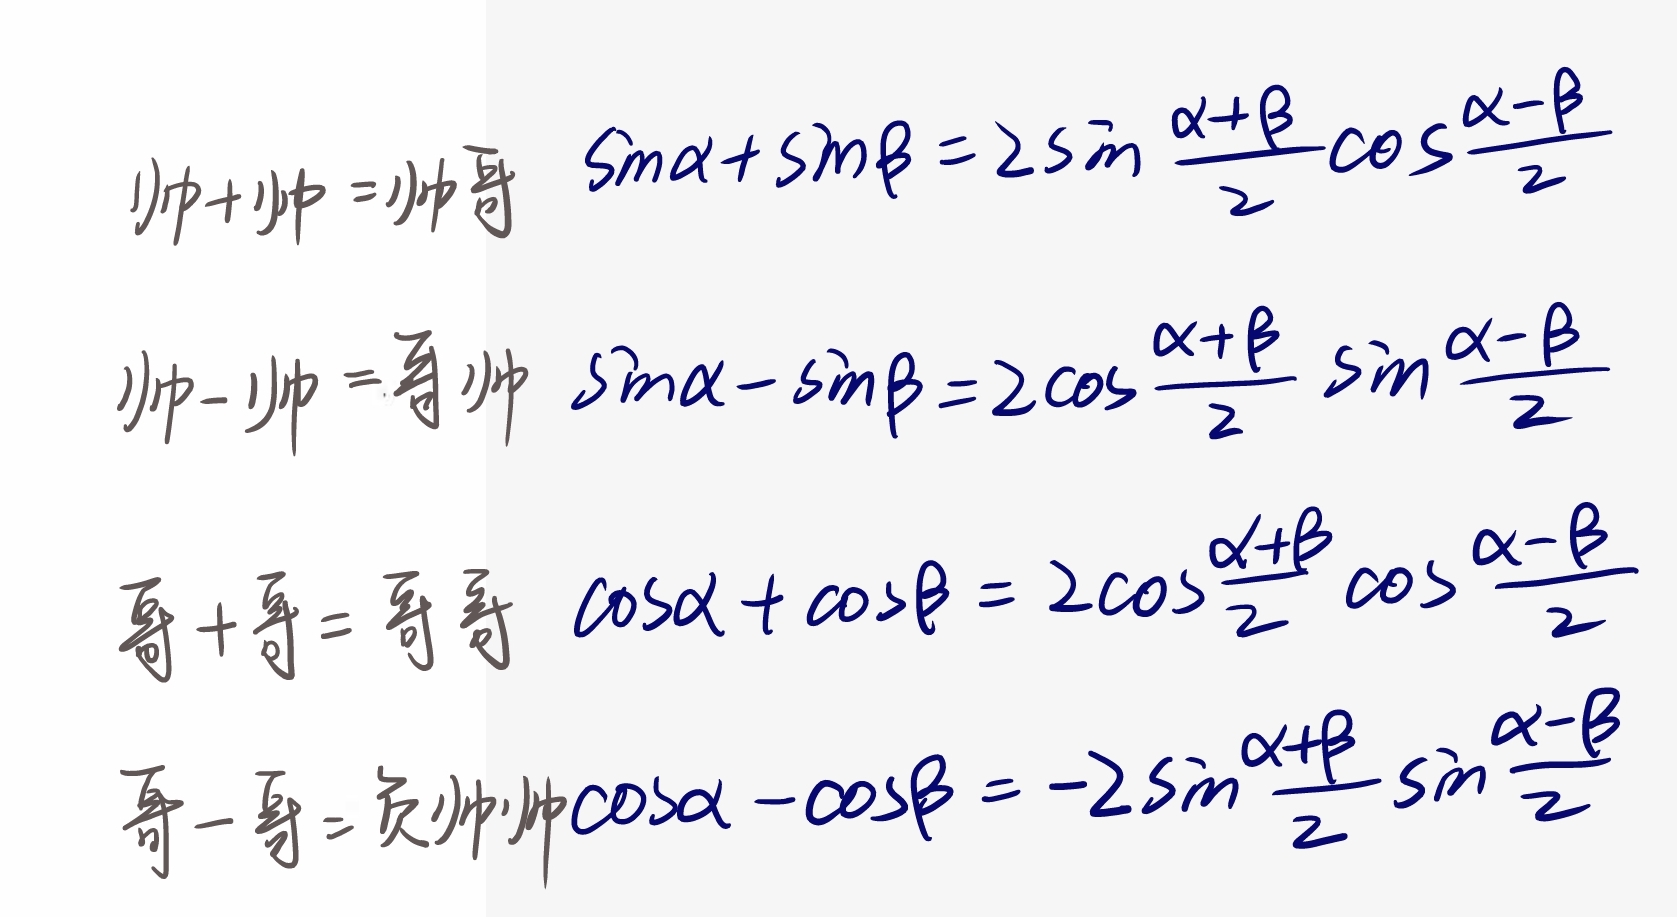 帅+帅=帅哥 sinα+sinβ=2sin (α+β)/2 cos (α-β)/2
帅-帅=哥帅 sinα-sinβ=2cos (α+β)/2 sin (α-β)/2
哥+哥=哥哥 cosα+cosβ=2cos (α+β)/2 cos (α-β)/2
哥-哥=负帅帅 cosα-cosβ=-2sin (α+β)/2 sin (α-β)/2